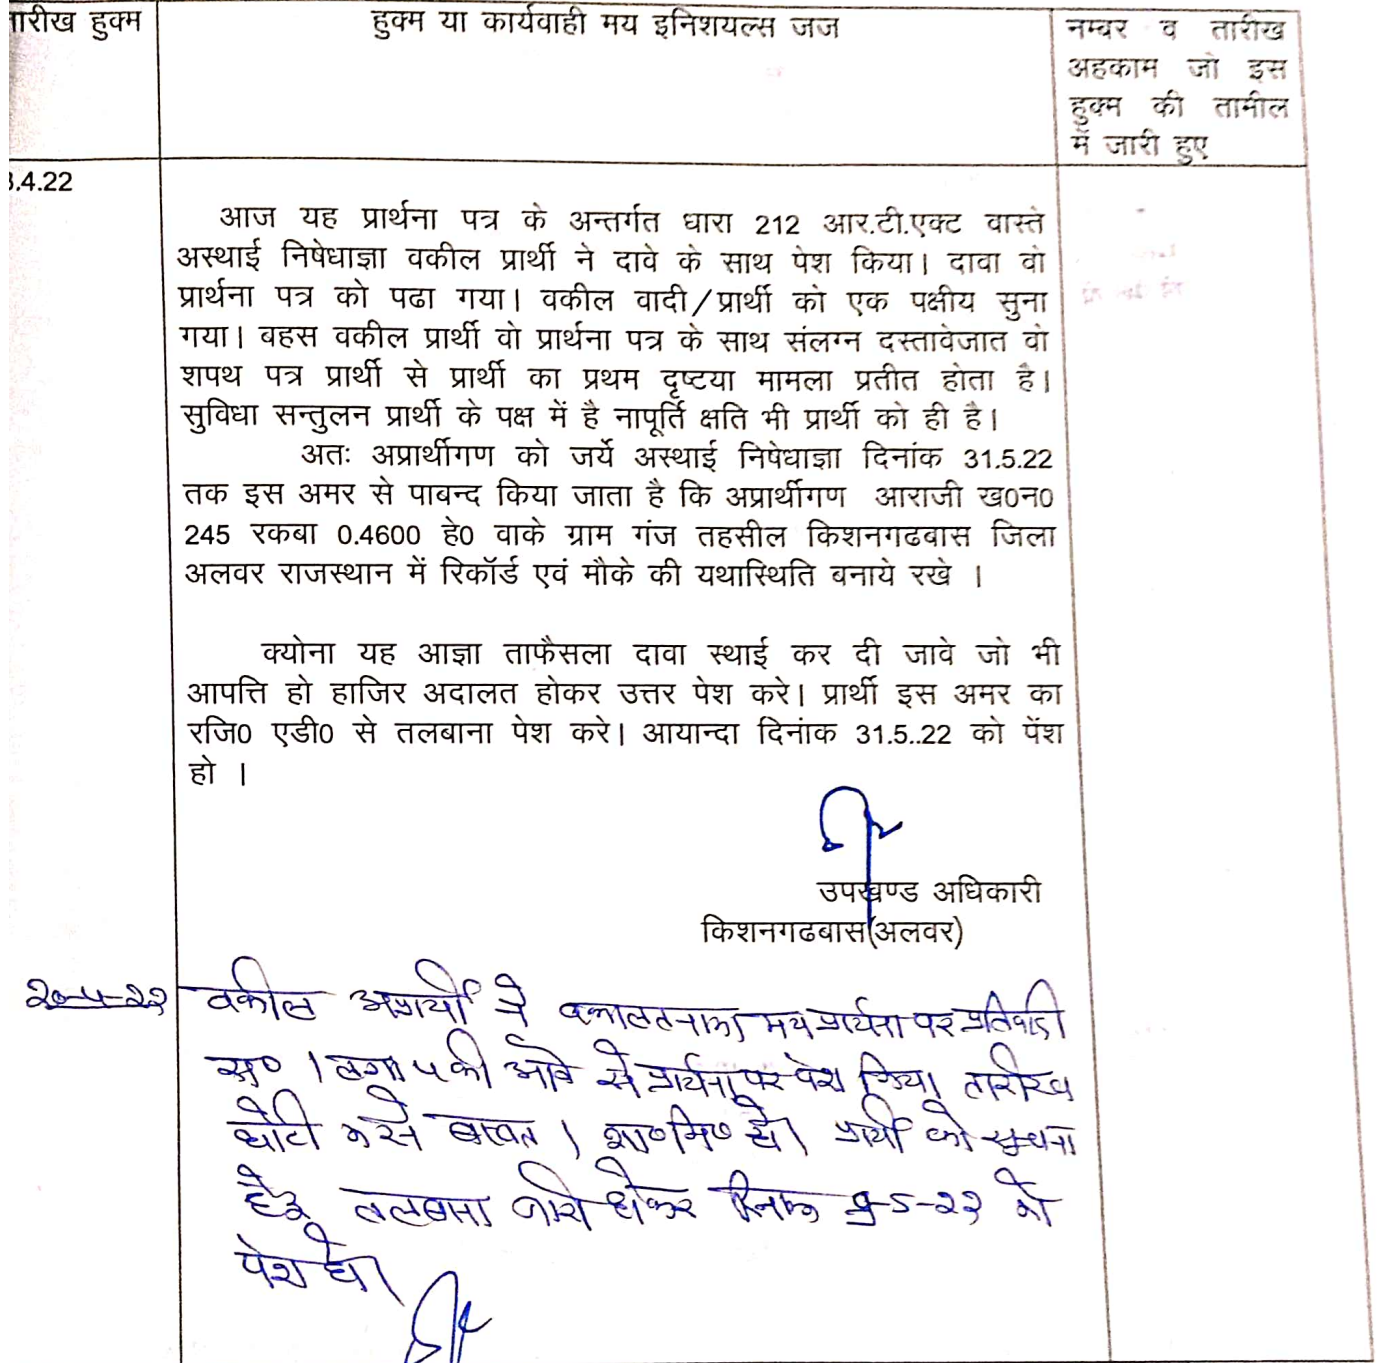 ारीख हुक्म
हुक्म या कार्यवाही मय इनिशयल्स जज
नम्वर व तारीख
अहकाम जो इस
हुक्म की तामील
में जारी हुए
.4.22
आज यह प्रार्थना पत्र के अन्तर्गत धारा 212 आर.टी.एक्ट वास्ते
अस्थाई निषेधाज्ञा वकील प्रार्थी ने दावे के साथ पेश किया। दावा वो
प्रार्थना पत्र को पढा गया। वकील वादी/प्रार्थी को एक पक्षीय सुना
गया। बहस वकील प्रार्थी वो प्रार्थना पत्र के साथ संलग्न दस्तावेजात वो
शपथ पत्र प्रार्थी से प्रार्थी का प्रथम दृष्टया मामला प्रतीत होता है।
सुविधा सन्तुलन प्रार्थी के पक्ष में है नापूर्ति क्षति भी प्रार्थी को ही है।
अतः अप्रार्थीगण को जर्ये अस्थाई निषेधाज्ञा दिनांक 31.5.22
तक इस अमर से पाबन्द किया जाता है कि अप्रार्थीगण आराजी ख0न0
245 रकबा 0.4600 हे0 वाके ग्राम गंज तहसील किशनगढबास जिला
अलवर राजस्थान में रिकॉर्ड एवं मौके की यथास्थिति बनाये रखे ।
क्योना यह आज्ञा ताफैसला दावा स्थाई कर दी जावे जो भी
आपत्ति हो हाजिर अदालत होकर उत्तर पेश करे। प्रार्थी इस अमर का
रजि0 एडी0 से तलबाना पेश करे। आयान्दा दिनांक 31.5..22 को पेंश
हो ।
उपखण्ड अधिकारी
किशनगढबास(अलवर)
वकील अप्रार्थी ने वकालतनामा मय प्रार्थना पत्र प्रतिवादी
स० 1 लगा ५ की ओर से प्रार्थना पत्र पेश किया तारीख
छोटी करने बाबत । शा०मि० हो। प्रार्थी को सूचना
हेतु तलबाना जारी होकर दिनांक -5-२२ को
पेश हो।